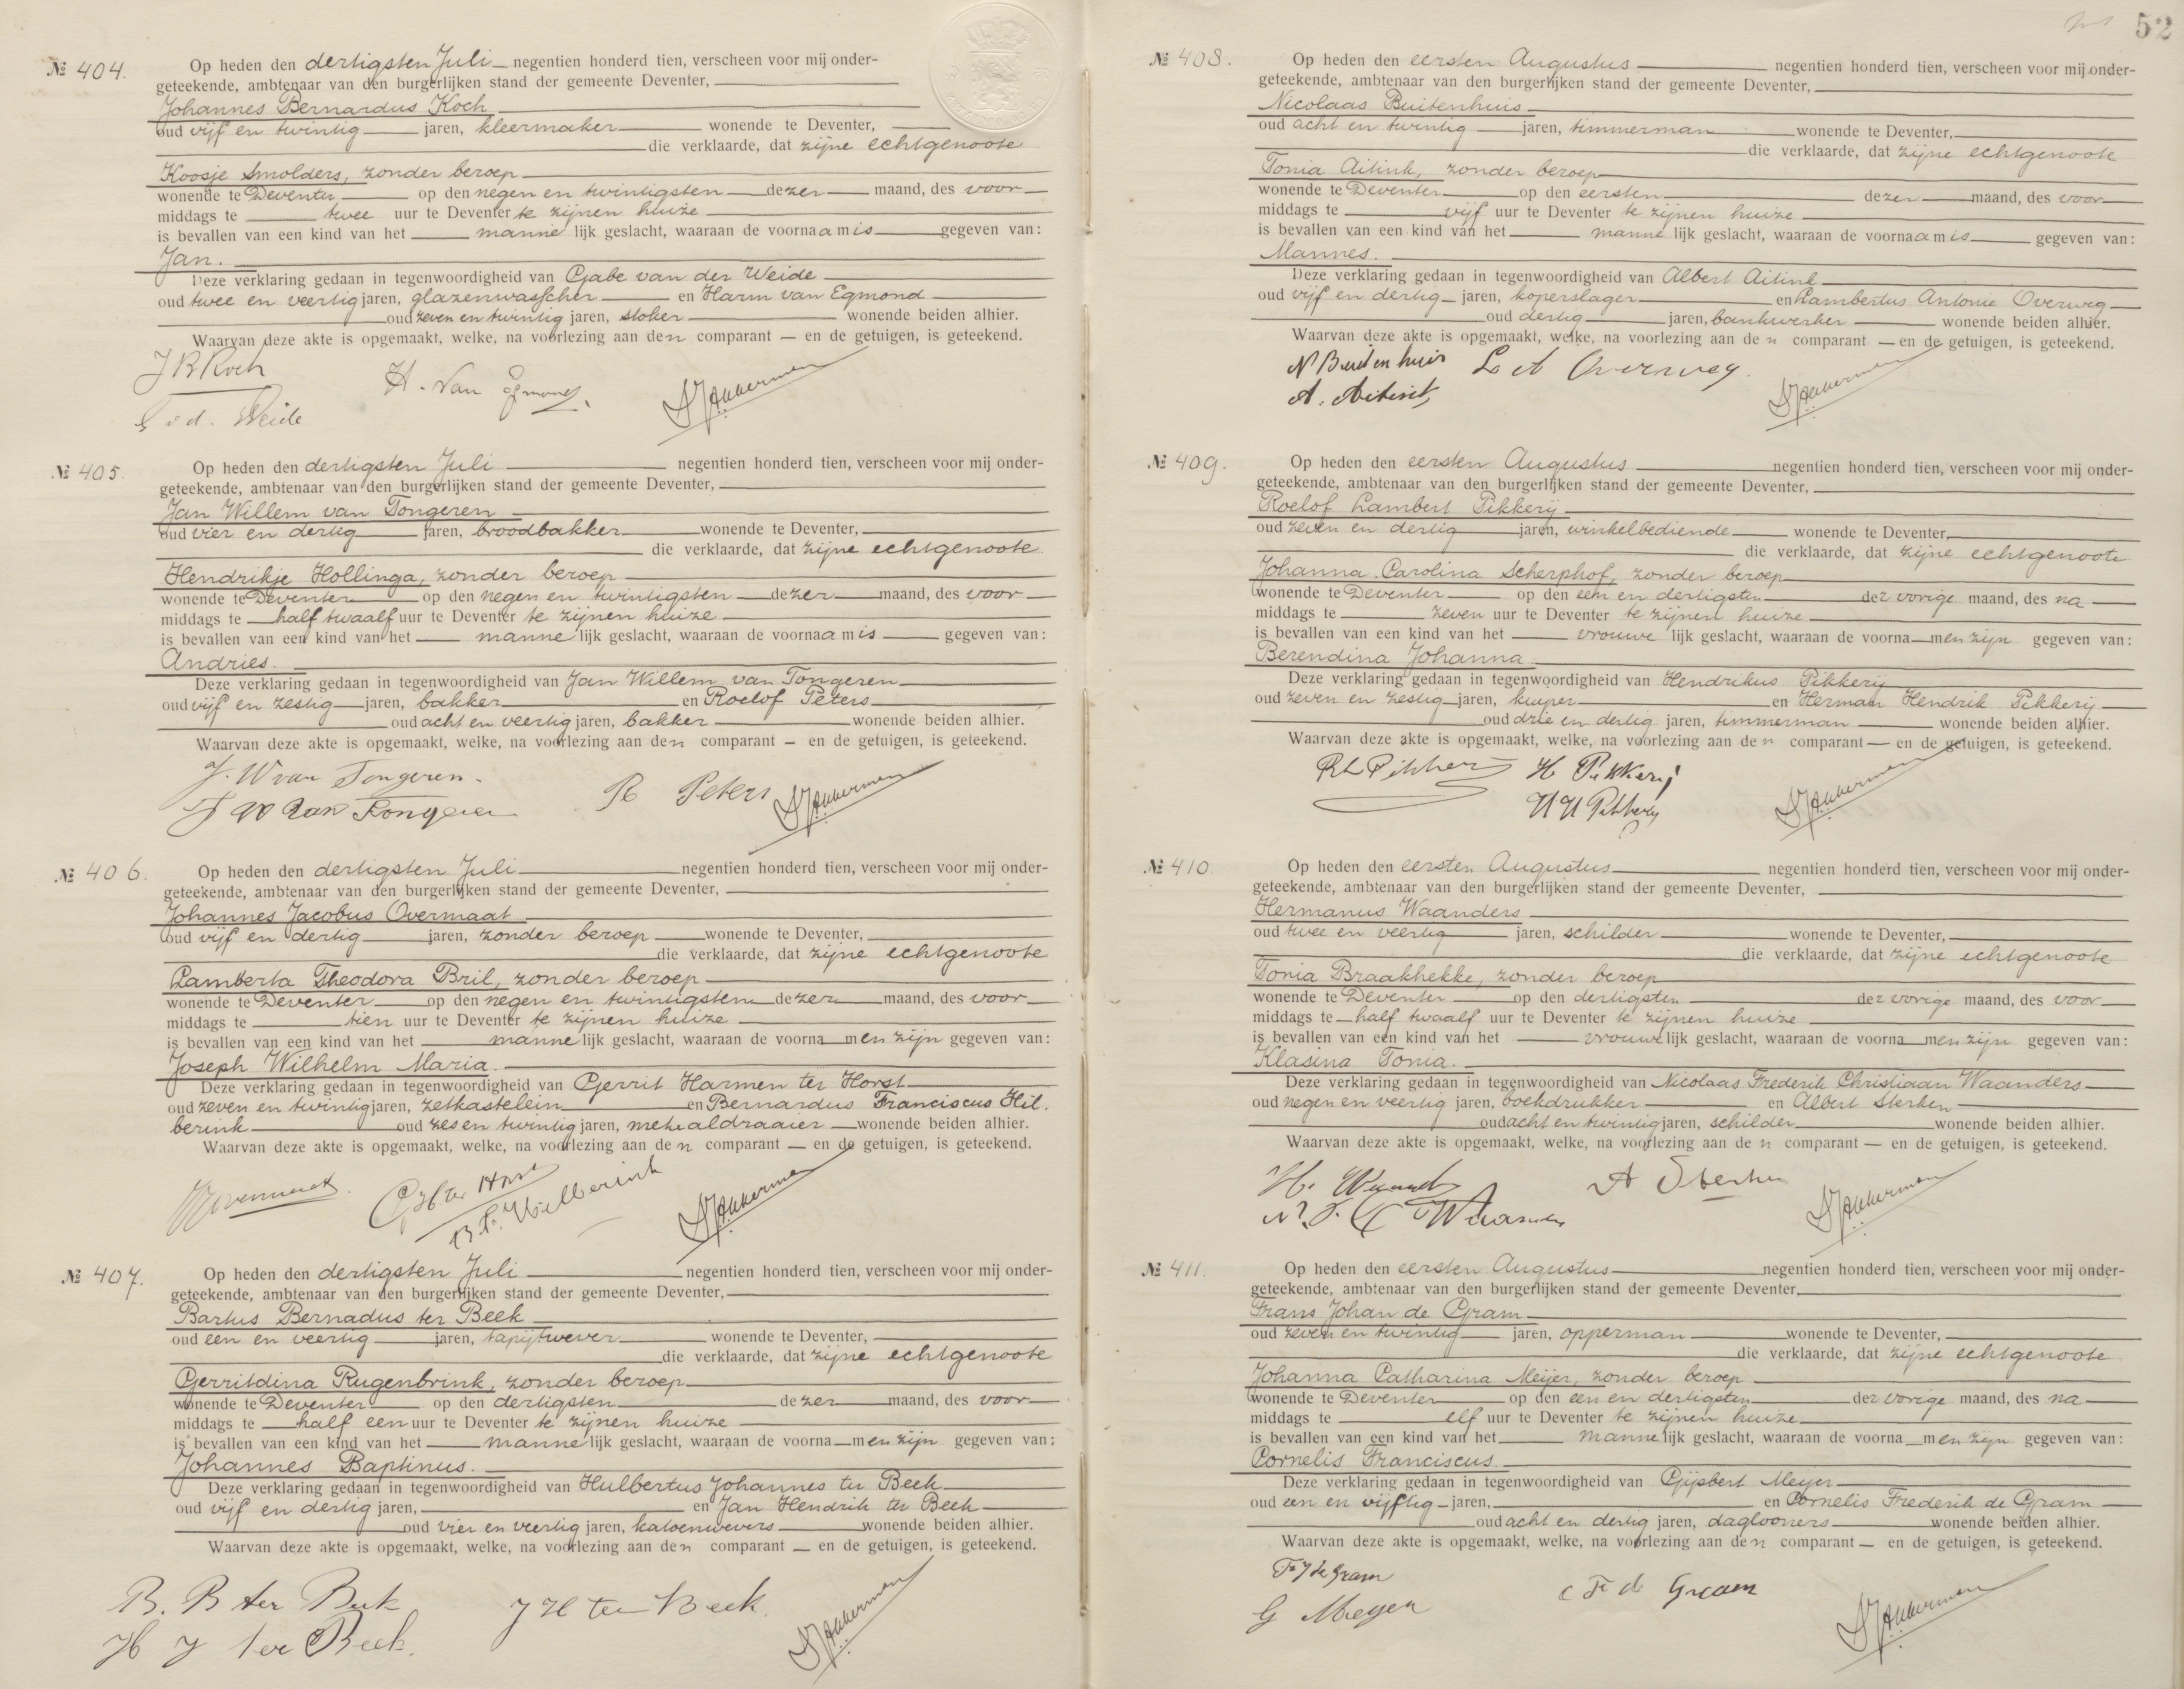 № 404. Op heden den dertigsten Juli negentien honderd tien, verscheen voor mij onder-
geteekende, ambtenaar van den burgerlijken stand der gemeente Deventer,
Johannes Bernardus Koch
oud vijf en twintig jaren, kleermaker wonende te Deventer,
die verklaarde, dat zijne echtgenoote
Koosje Smolders, zonder beroep
wonende te Deventer op den negen en twintigsten dezer maand, des voor
middags te twee uur te Deventer te zijnen huize
is bevallen van een kind van het manne lijk geslacht, waaraan de voornaam is gegeven van:
Jan.
Deze verklaring gedaan in tegenwoordigheid van Gabe van der Weide
oud twee en veertig jaren, glazenwasscher en Harm van Egmond
oud zeven en twintig jaren, stoker wonende beiden alhier.
Waarvan deze akte is opgemaakt, welke, na voorlezing aan den comparant en de getuigen, is geteekend.
J B Koch
H. van Egmond.
G v d. Weide
№ 405. Op heden den dertigsten Juli negentien honderd tien, verscheen voor mij onder-
geteekende, ambtenaar van den burgerlijken stand der gemeente Deventer,
Jan Willem van Tongeren
oud vier en dertig jaren, broodbakker wonende te Deventer,
die verklaarde, dat zijne echtgenoote
Hendrikje Hollinga, zonder beroep
wonende te Deventer op den negen en twintigsten dezer maand, des voor
middags te half twaalf uur te Deventer te zijnen huize
is bevallen van een kind van het manne lijk geslacht, waaraan de voornaam is gegeven van:
Andries.
Deze verklaring gedaan in tegenwoordigheid van Jan Willem van Tongeren
oud vijf en zestig jaren, bakker en Roelof Peters
oud acht en veertig jaren, bakker wonende beiden alhier.
Waarvan deze akte is opgemaakt, welke, na voorlezing aan den comparant en de getuigen, is geteekend.
J. W van Tongeren.
J W van Tongeren
R Peters
№ 406. Op heden den dertigsten Juli negentien honderd tien, verscheen voor mij onder-
geteekende, ambtenaar van den burgerlijken stand der gemeente Deventer,
Johannes Jacobus Overmaat
oud vijf en dertig jaren, zonder beroep wonende te Deventer,
die verklaarde, dat zijne echtgenoote
Lamberta Theodora Bril, zonder beroep
wonende te Deventer op den negen en twintigsten dezer maand, des voor
middags te tien uur te Deventer te zijnen huize
is bevallen van een kind van het manne lijk geslacht, waaraan de voorna men zijn gegeven van:
Joseph Wilhelm Maria.
Deze verklaring gedaan in tegenwoordigheid van Gerrit Harmen ter Horst
oud zeven en twintig jaren, zetkastelein en Bernardus Franciscus Hil.
berink oud zes en twintig jaren, metaaldraaier wonende beiden alhier.
Waarvan deze akte is opgemaakt, welke, na voorlezing aan den comparant en de getuigen, is geteekend.
G H ter Horst
B. F. Hilberink
№ 407. Op heden den dertigsten Juli negentien honderd tien, verscheen voor mij onder-
geteekende, ambtenaar van den burgerlijken stand der gemeente Deventer,
Bartus Bernadus ter Beek
oud een en veertig jaren, tapijtwever wonende te Deventer,
die verklaarde, dat zijne echtgenoote
Gerritdina Rugenbrink, zonder beroep
wonende te Deventer op den dertigsten dezer maand, des voor
middags te half een uur te Deventer te zijnen huize
is bevallen van een kind van het manne lijk geslacht, waaraan de voorna men zijn gegeven van:
Johannes Baptinus.
Deze verklaring gedaan in tegenwoordigheid van Hulbertus Johannes ter Beek
oud vijf en dertig jaren, en Jan Hendrik ter Beek
oud vier en veertig jaren, katoenwevers wonende beiden alhier.
Waarvan deze akte is opgemaakt, welke, na voorlezing aan den comparant en de getuigen, is geteekend.
B. B ter Beek
J H ter Beek.
H J ter Beek.
52
№ 408. Op heden den eersten Augustus negentien honderd tien, verscheen voor mij onder-
geteekende, ambtenaar van den burgerlijken stand der gemeente Deventer,
Nicolaas Buitenhuis
oud acht en twintig jaren, timmerman wonende te Deventer,
die verklaarde, dat zijne echtgenoote
Tonia Aitink, zonder beroep
wonende te Deventer op den eersten dezer maand, des voor
middags te vijf uur te Deventer te zijnen huize
is bevallen van een kind van het manne lijk geslacht, waaraan de voornaam is gegeven van:
Mannes.
Deze verklaring gedaan in tegenwoordigheid van Albert Aitink
oud vijf en dertig jaren, koperslager en Lambertus Antonie Overweg
oud dertig jaren, bankwerker wonende beiden alhier.
Waarvan deze akte is opgemaakt, welke, na voorlezing aan den comparant en de getuigen, is geteekend.
N Buitenhuis
L A Overweg.
A. Aitink
№ 409. Op heden den eersten Augustus negentien honderd tien, verscheen voor mij onder-
geteekende, ambtenaar van den burgerlijken stand der gemeente Deventer,
Roelof Lambert Pikkerij
oud zeven en dertig jaren, winkelbediende wonende te Deventer,
die verklaarde, dat zijne echtgenoote
Johanna Carolina Scherphof, zonder beroep
wonende te Deventer op den een en dertigsten der vorige maand, des na
middags te zeven uur te Deventer te zijnen huize
is bevallen van een kind van het vrouwe lijk geslacht, waaraan de voorna men zijn gegeven van:
Berendina Johanna.
Deze verklaring gedaan in tegenwoordigheid van Hendrikus Pikkerij
oud zeven en zestig jaren, kuiper en Herman Hendrik Pikkerij
oud drie en dertig jaren, timmerman wonende beiden alhier.
Waarvan deze akte is opgemaakt, welke, na voorlezing aan den comparant en de getuigen, is geteekend.
RL Pikkerij
H Pikkerij
H H Pikkerij
№ 410. Op heden den eersten Augustus negentien honderd tien, verscheen voor mij onder-
geteekende, ambtenaar van den burgerlijken stand der gemeente Deventer,
Hermanus Waanders
oud twee en veertig jaren, schilder wonende te Deventer,
die verklaarde, dat zijne echtgenoote
Tonia Braakhekke, zonder beroep
wonende te Deventer op den dertigsten der vorige maand, des voor
middags te half twaalf uur te Deventer te zijnen huize
is bevallen van een kind van het vrouwe lijk geslacht, waaraan de voorna men zijn gegeven van:
Klasina Tonia.
Deze verklaring gedaan in tegenwoordigheid van Nicolaas Frederik Christiaan Waanders
oud negen en veertig jaren, boekdrukker en Albert Sterken
oud acht en twintig jaren, schilder wonende beiden alhier.
Waarvan deze akte is opgemaakt, welke, na voorlezing aan den comparant en de getuigen, is geteekend.
H. Waanders
A Sterken
N. F. C Waanders
№ 411. Op heden den eersten Augustus negentien honderd tien, verscheen voor mij onder-
geteekende, ambtenaar van den burgerlijken stand der gemeente Deventer,
Frans Johan de Gram
oud zeven en twintig jaren, opperman wonende te Deventer,
die verklaarde, dat zijne echtgenoote
Johanna Catharina Meijer, zonder beroep
wonende te Deventer op den een en dertigsten der vorige maand, des na
middags te elf uur te Deventer te zijnen huize
is bevallen van een kind van het manne lijk geslacht, waaraan de voorna men zijn gegeven van:
Cornelis Franciscus.
Deze verklaring gedaan in tegenwoordigheid van Gijsbert Meijer
oud een en vijftig jaren, en Cornelis Frederik de Gram
oud acht en dertig jaren, daglooners wonende beiden alhier.
Waarvan deze akte is opgemaakt, welke, na voorlezing aan den comparant en de getuigen, is geteekend.
F J de Gram
C F de Graam
G Meyer